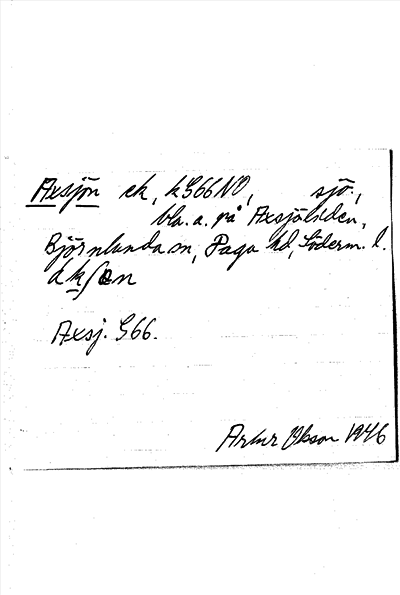 Axsjön ek, kG66NO, sjö.,
bla. a. på Axsjöhelden,
Björnlunda sn, Daga hd, Söderm. l.
aksøn
Axsj. G66.
Artur Olsson 1946